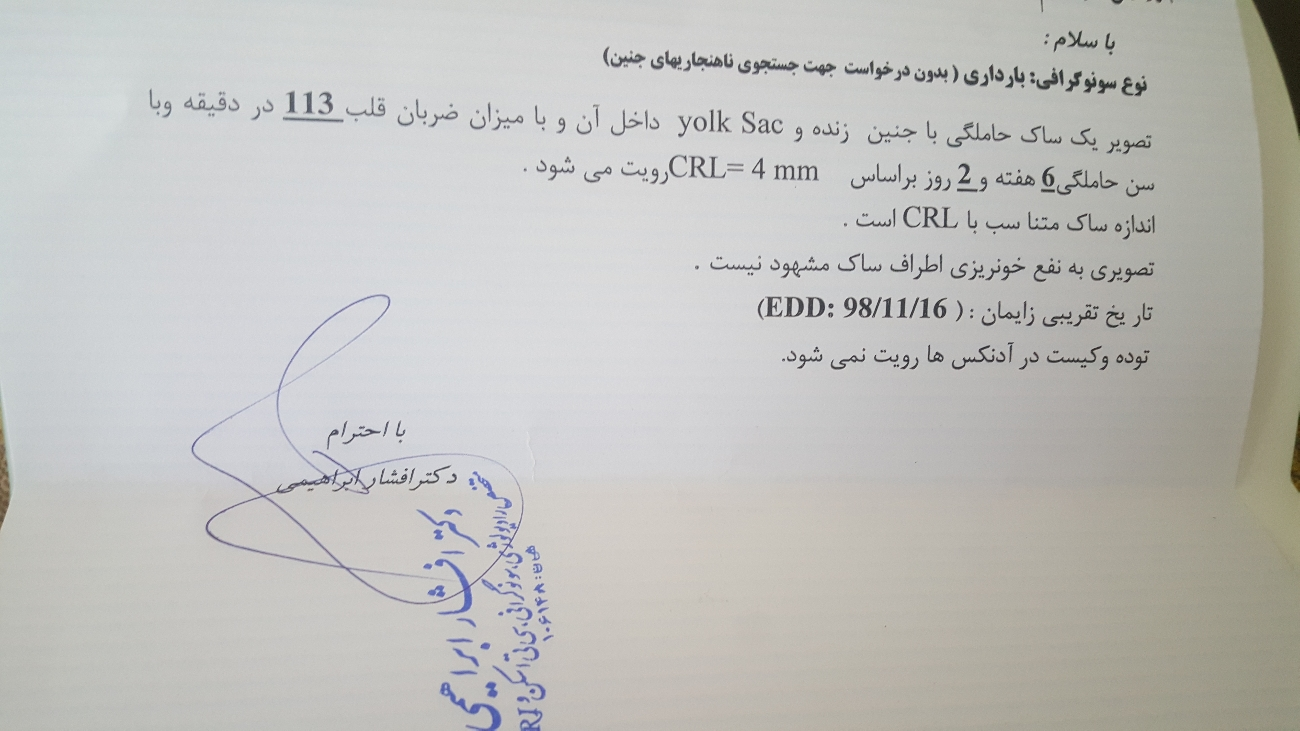 با سلام :
نوع سونوگرافی: بارداری ( بدون درخواست جهت جستجوی ناهنجاریهای جنین)
تصویر یک ساک حاملگی با جنین زنده و yolk Sac داخل آن و با میزان ضربان قلب 113 در دقیقه وبا
سن حاملگی 6 هفته و 2 روز براساس CRL= 4 mm رویت می شود .
اندازه ساک متنا سب با CRL است .
تصویری به نفع خونریزی اطراف ساک مشهود نیست .
تار یخ تقریبی زایمان : ( EDD: 98/11/16)
توده وکیست در آدنکس ها رویت نمی شود.
با احترام
دکترافشار ابراهیمی
دکتر افشار ابراهیمی
متخصص رادیولوژی، سونوگرافی، سی تی اسکن و